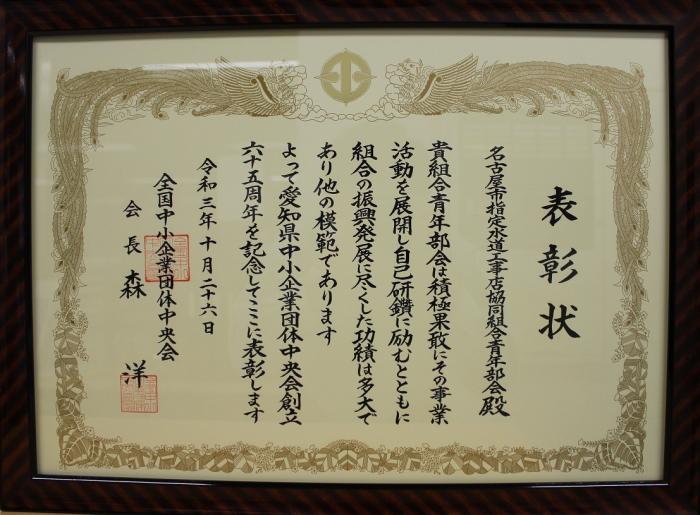 表彰状
名古屋市指定水道工事店協同組合青年部会殿
貴組合青年部会は積極果敢にその事業
活動を展開し自己研鑽に励むとともに
組合の振興発展に尽くした功績は多大で
あり他の模範であります
よって愛知県中小企業団体中央会創立
六十五周年を記念してここに表彰します
令和三年十月二十六日
全国中小企業団体中央会
会長 森 洋